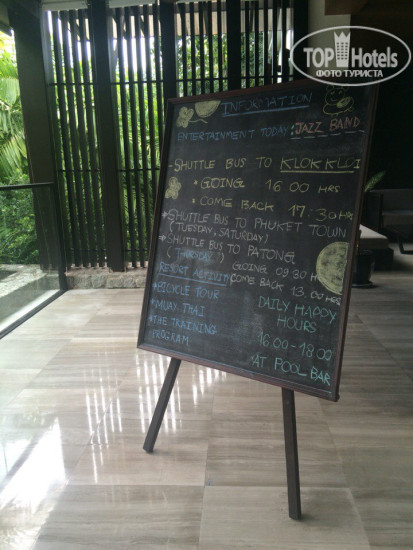 TOP Hotels
ФОТО ТУРИСТА
INFORMATION
ENTERTAINMENT TODAY : JAZZ BAND
- SHUTTLE BUS TO KLOKKLOI
* GOING 16 00 HRS
* COME BACK 17.30 HRS
* SHUTTLE BUS TO PHUKET TOWN
(TUESDAY, SATURDAY)
* SHUTTLE BUS TO PATONG
GOING 09.30 H
COME BACK 13.00 HRS
RESORT ACTIVITY
* BICYCLE TOUR
* MUAY THAI
* THE TRAINING
PROGRAM
DAILY HAPPY
HOURS
16.00 - 18.00
AT POOL BAR